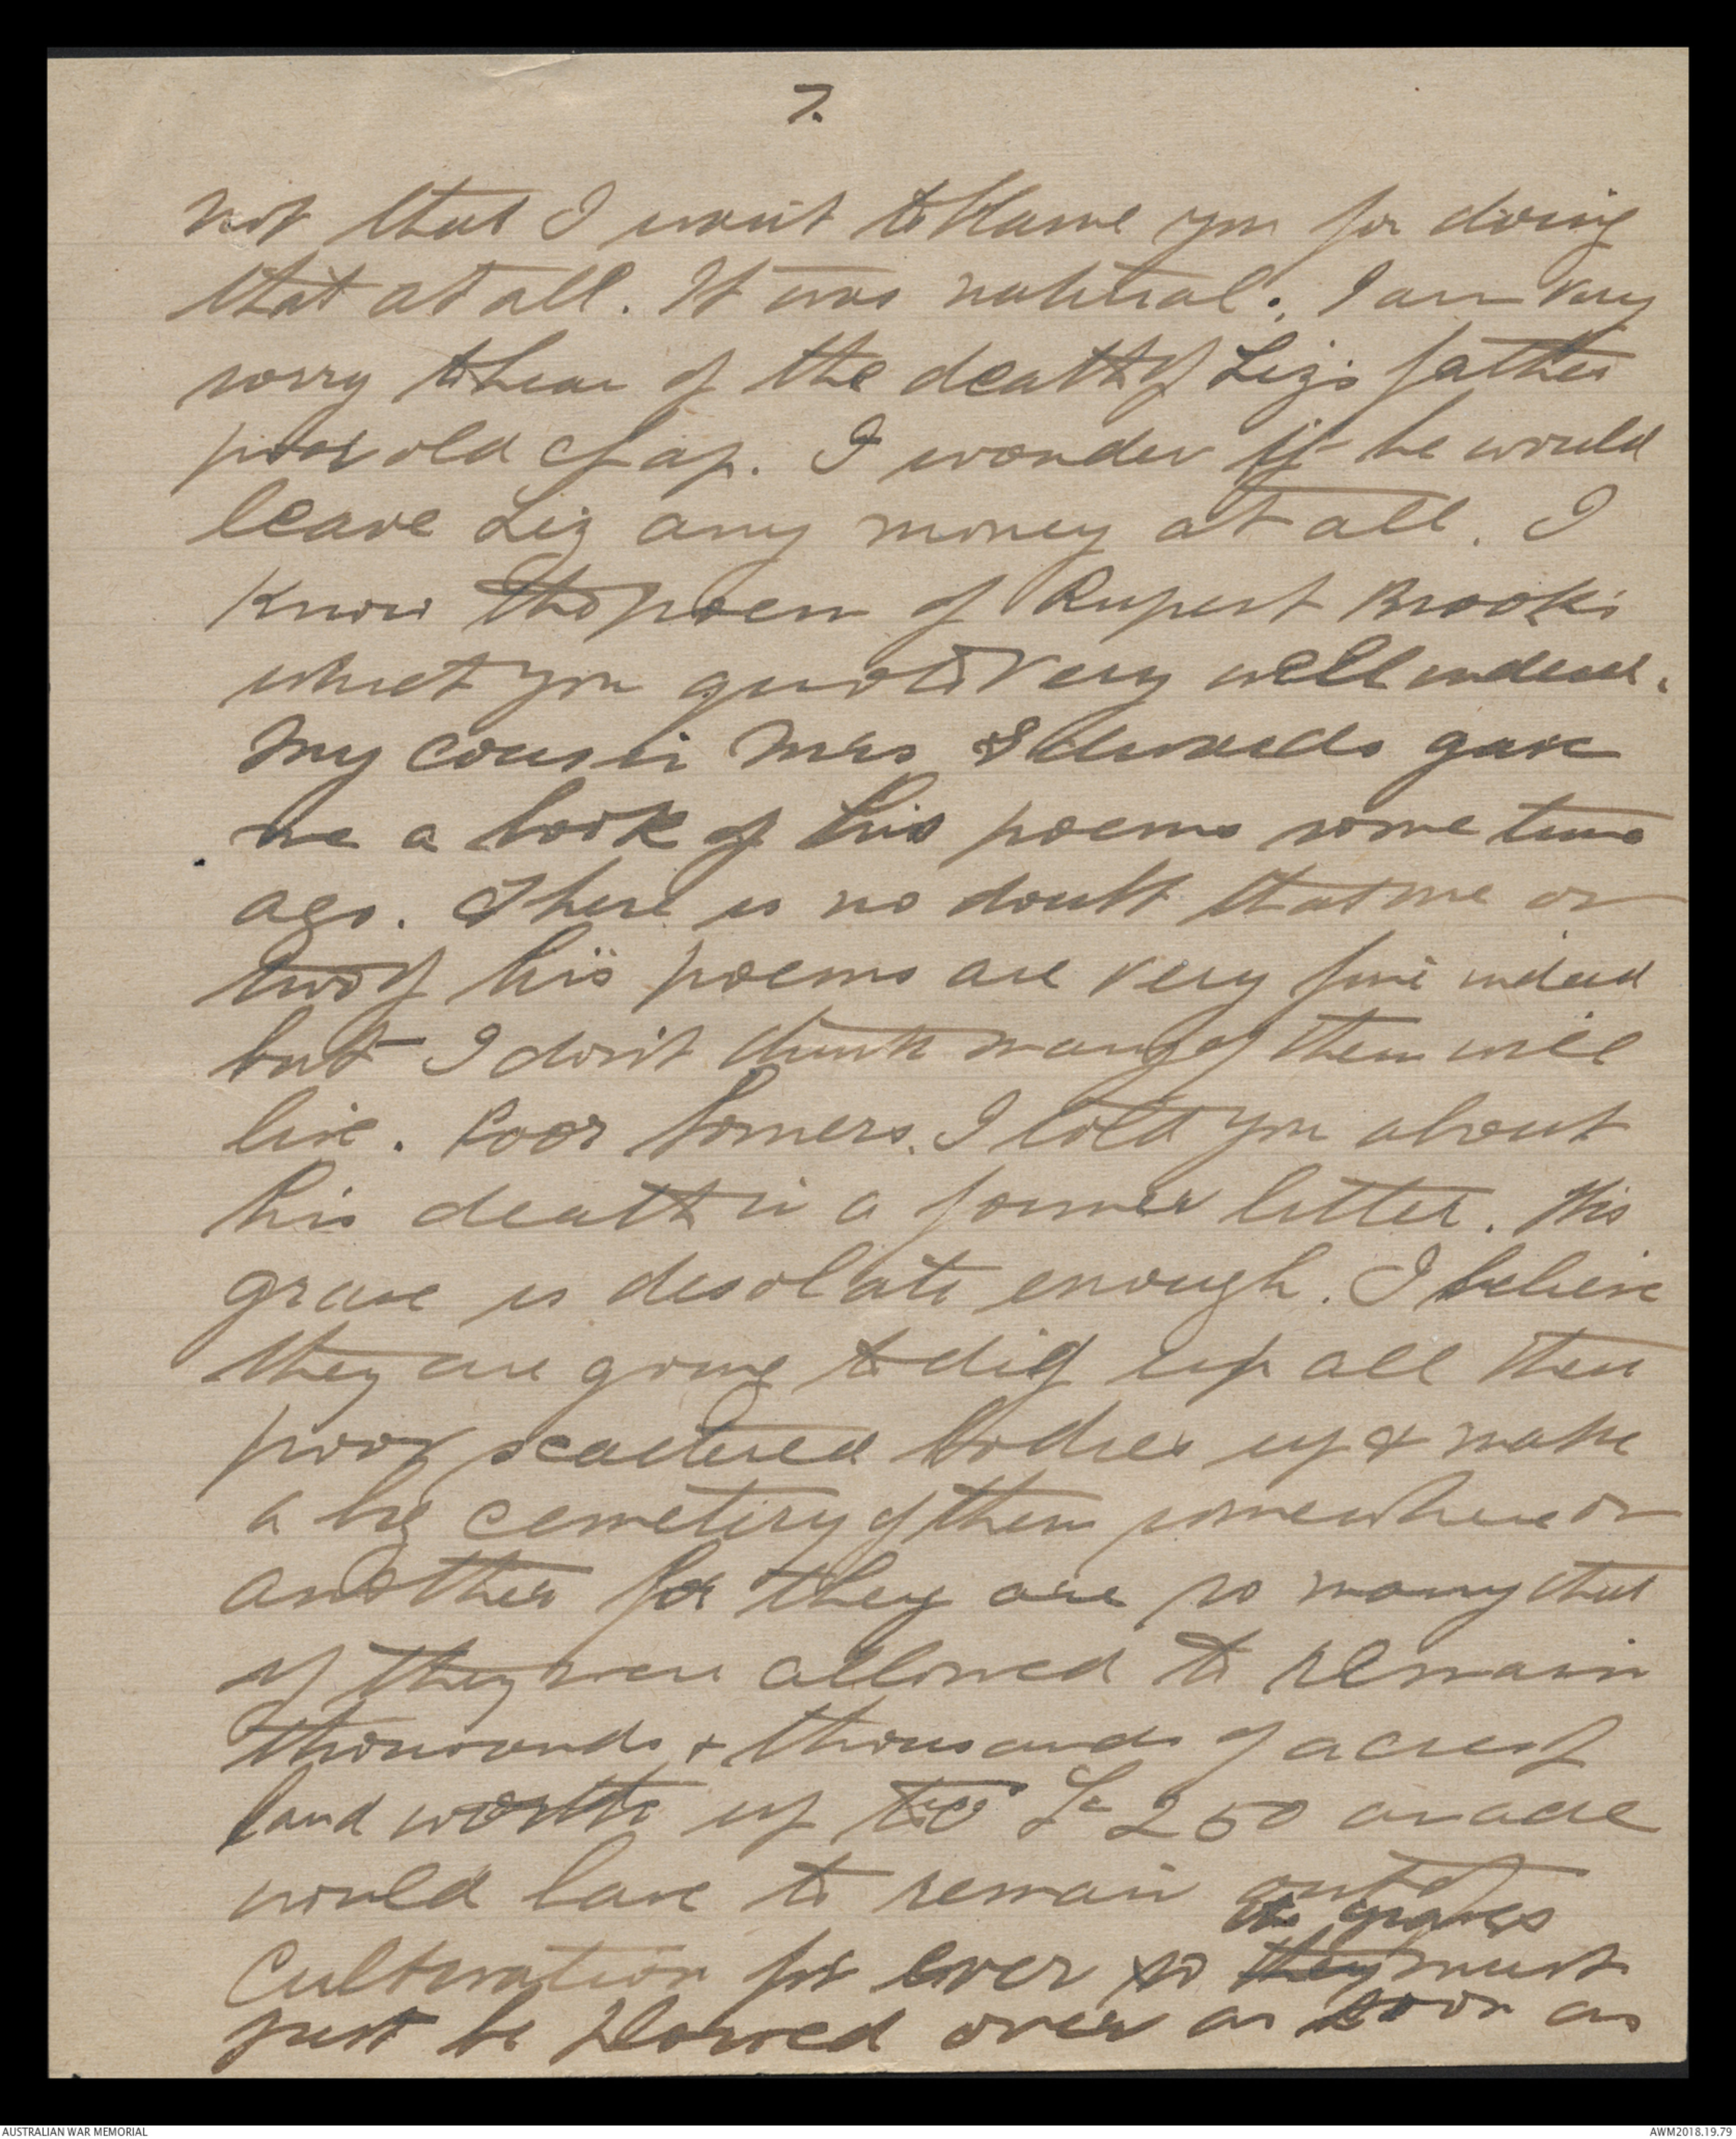 7.
not that I want to blame you for doing
that at all. It was natural. I am very
sorry to hear of the death of Liz's father
poor old chap. I wonder if he would
leave Liz any money at all. I
know the poem of Rupert Brook's
what you quote very well indeed.
My cousin Mrs Edwards gave
me a book of his poems some time
ago. There is no doubt that one or
two of his poems are very fine indeed
but I don't think many of them will
live. Poor Somers. I told you about
his death in a former letter. His
grave is desolate enough. I believe
they are going to dig up all these
poor scattered bodies up & make
a big cemetery of them somewhere or
another for they are so many that
if they were allowed to remain
thousands & thousands of acres of
land worth up to £250 an acre
would have to remain out of
the graves
cultivation for ever so they must
just be plowed over as soon as
AUSTRALIAN WAR MEMORIAL
AWM2018.19.79